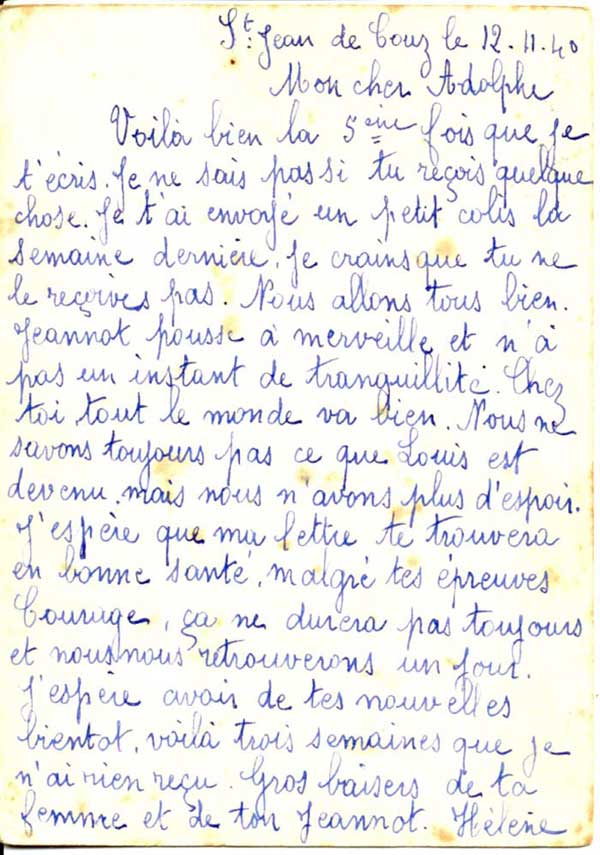 St. Jean de Couz le 12.11.40
Mon cher Adolphe
Voilà bien la 5ème fois que je
t'écris. Je ne sais pas si tu reçois quelque
chose. Je t'ai envoyé un petit colis la
semaine dernière. Je crains que tu ne
le reçoives pas. Nous allons tous bien.
Jeannot pousse à merveille et n'à
pas un instant de tranquillité. Chez
toi, tout le monde va bien. Nous ne
savons toujours pas ce que Louis est
devenu, mais nous n'avons plus d'espoir.
J'espère que ma lettre te trouvera
en bonne santé, malgré tes épreuves
Courage, ça ne durera pas toujours
et nous nous retrouverons un jour.
J'espère avoir de tes nouvelles
bientot, voilà trois semaines que je
n'ai rien reçu. Gros baisers de ta
femme et de ton Jeannot. Hélène